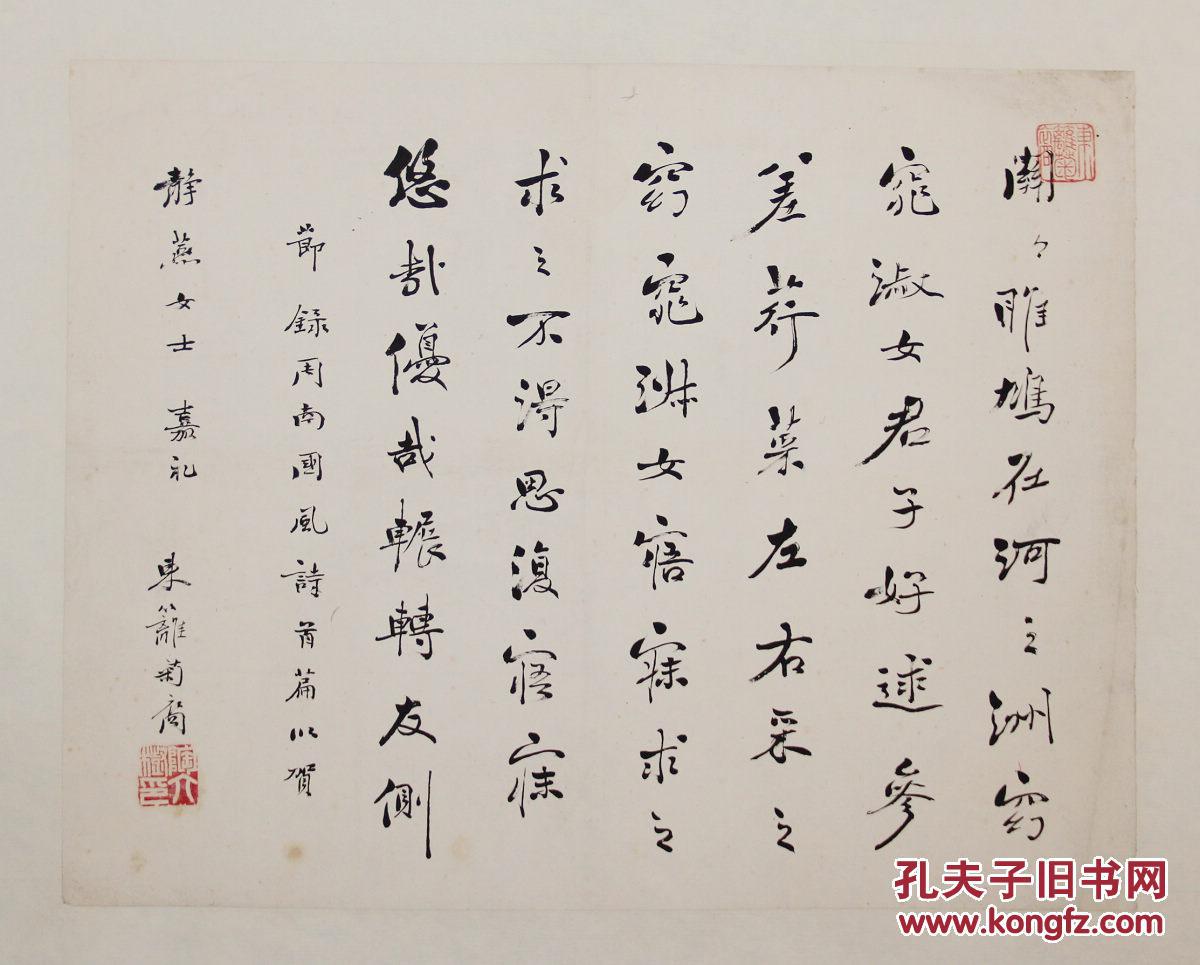 關々雎鳩在河之洲窈
窕淑女君子好逑參
差荇菜左右采之
窈窕淑女寤寐求之
求之不得思復寤寐
悠哉優哉輾轉友側
節錄周南國風詩首篇以賀
靜燕女士 嘉礼 東籬菊裔
孔夫子旧书网
www.kongfz.com